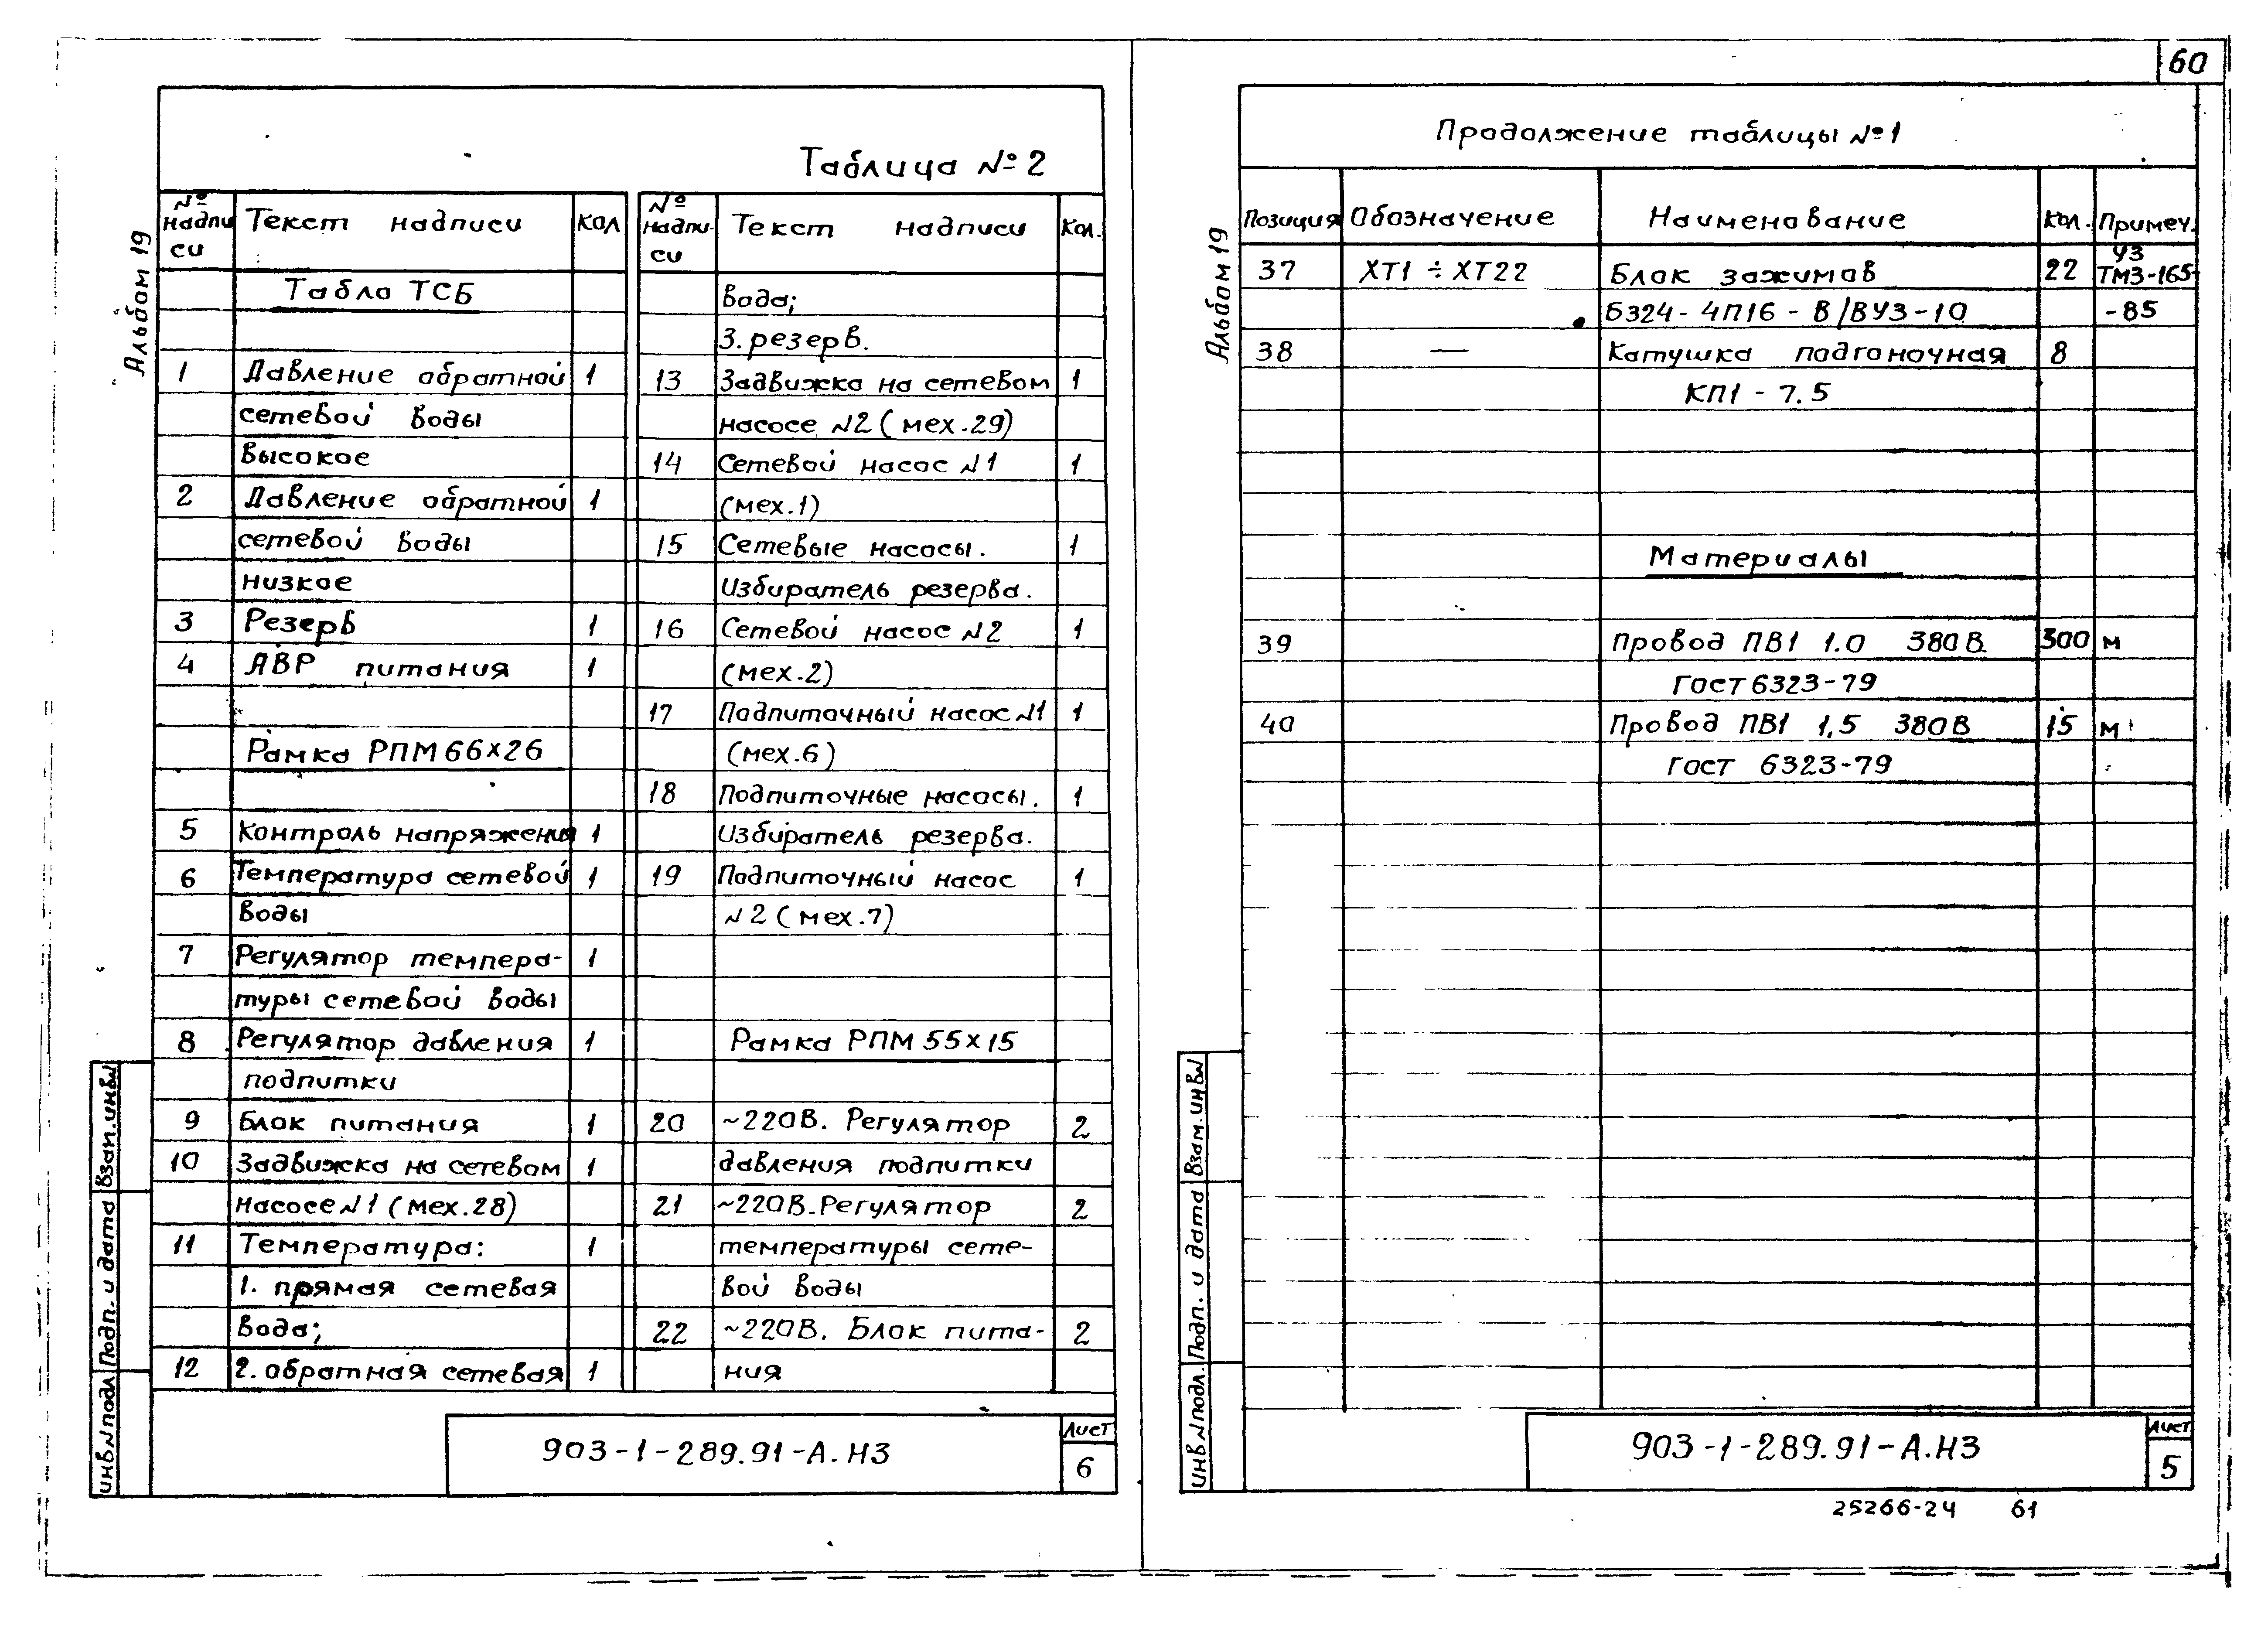 60
Альбом 19
Таблица №2
№ надписи Текст надписи Кол
Табло ТСБ
1 Давление обратной 1
сетевой воды
высокое
2 Давление обратной 1
сетевой воды
низкое
3 Резерв 1
4 АВР питания 1
Рамка РПМ 66х26
5 Контроль напряжения 1
6 Температура сетевой 1
воды
7 Регулятор темпера-
туры сетевой воды 1
8 Регулятор давления 1
подпитки
9 Блок питания 1
10 Задвижка на сетевом 1
насосе N1 (мех.28)
11 Температура: 1
1. прямая сетевая
вода;
12 2. обратная сетевая 1
№ надпи-си Текст надписи Кол.
вода;
3. резерв.
13 Задвижка на сетевом 1
насосе N2 (мех.29)
14 Сетевой насос N1 1
(мех.1)
15 Сетевые насосы. 1
Избиратель резерва.
16 Сетевой насос N2 1
(мех.2)
17 Подпиточный насос N1 1
(мех.6)
18 Подпиточные насосы. 1
Избиратель резерва.
19 Подпиточный насос 1
N2 (мех.7)
Рамка РПМ 55х15
20 ~220В. Регулятор 2
давления подпитки
21 ~220В. Регулятор 2
температуры сете-
вой воды
22 ~220В. Блок пита- 2
ния
Инв N подл Подп. и дата Взам. инв N
903-1-289.91-А.НЗ
Лист
6
Альбом 19
Продолжение таблицы №1
Позиция Обозначение Наименование Кол. Примеч.
37 ХТ1 ÷ ХТ22 Блок зажимов 22 У3 ТМ3-165-
Б324-4П16-В/ВУ3-10 -85
38 — Катушка подгоночная 8
КП1-7.5
Материалы
39 Провод ПВ1 1.0 380В 300 м
ГОСТ 6323-79
40 Провод ПВ1 1,5 380В 15 м
ГОСТ 6323-79
Инв N подл. Подп. и дата Взам. инв N
903-1-289.91-А.НЗ
Лист
5
25266-24 61